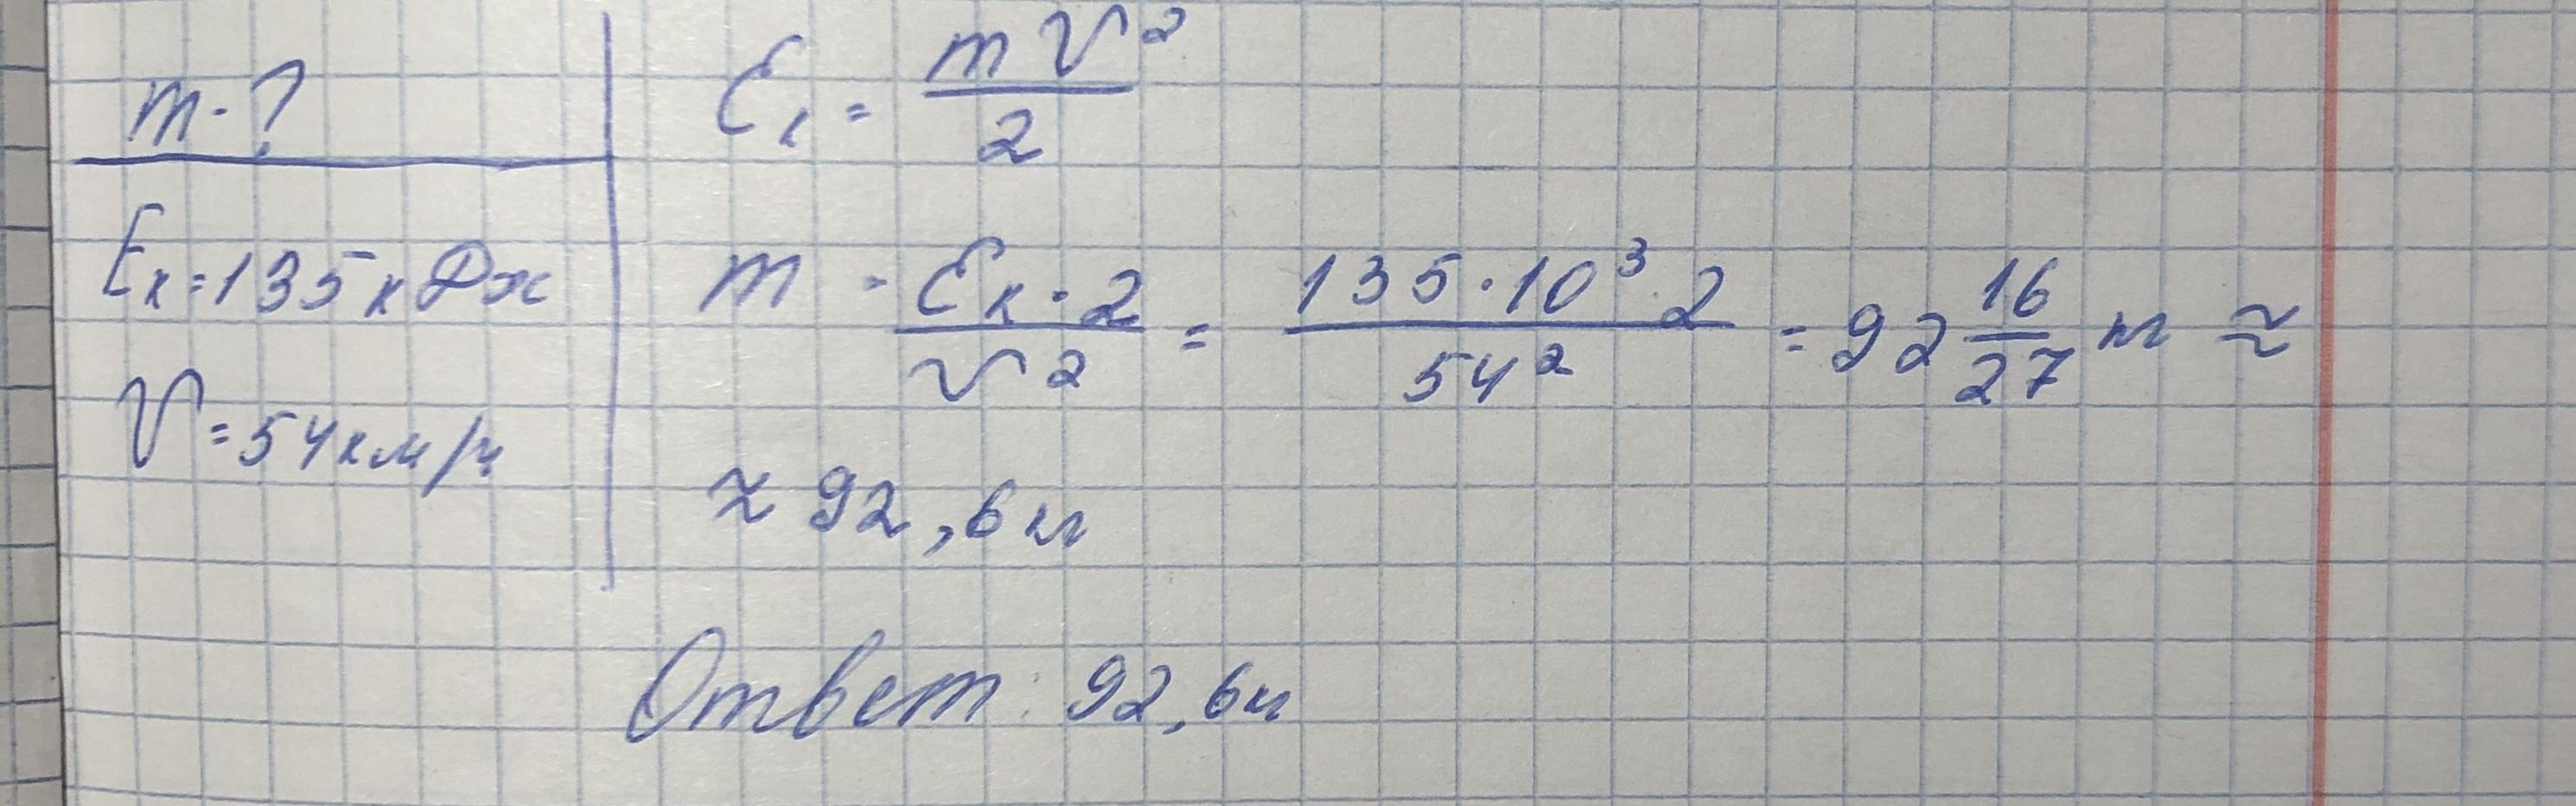 m - ?
Eк = 135 кДж
V = 54 км/ч
Eк = mV²/2
m = Eк · 2 / V² = 135 · 10³ · 2 / 54² = 92 16/27 кг ≈
≈ 92,6 кг
Ответ: 92,6 кг